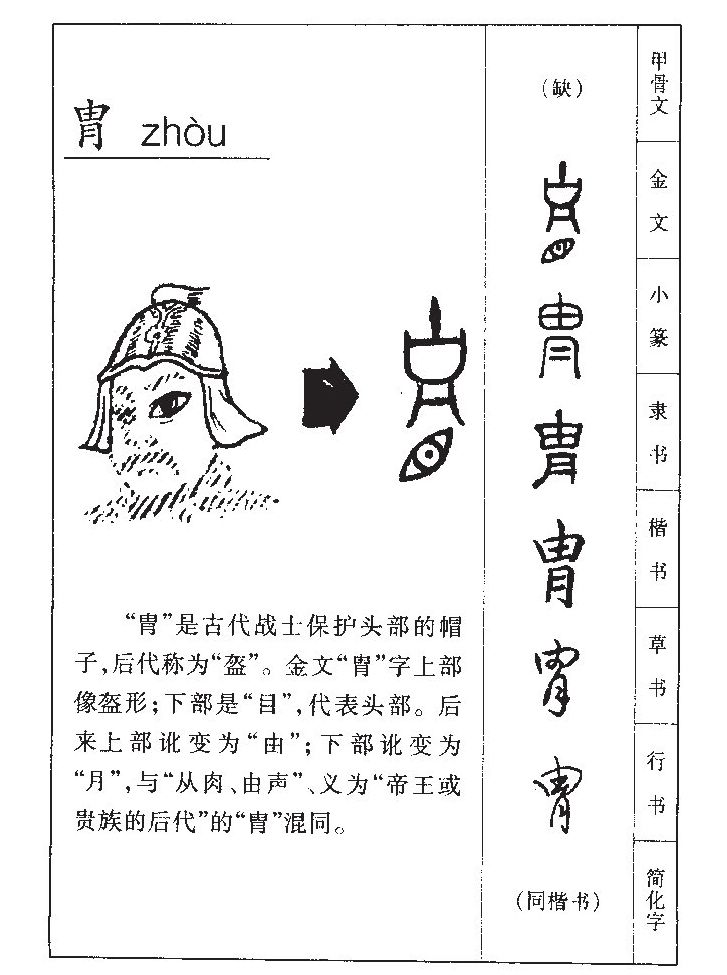 胄 zhòu
“胄”是古代战士保护头部的帽
子,后代称为“盔”。金文“胄”字上部
像盔形;下部是“目”,代表头部。后
来上部讹变为“由”;下部讹变为
“月”,与“从肉、由声”、义为“帝王或
贵族的后代”的“胄”混同。
(缺) 甲骨文
金文
小篆
胄 隶书
胄 楷书
胄 草书
胄 行书
(同楷书) 简化字